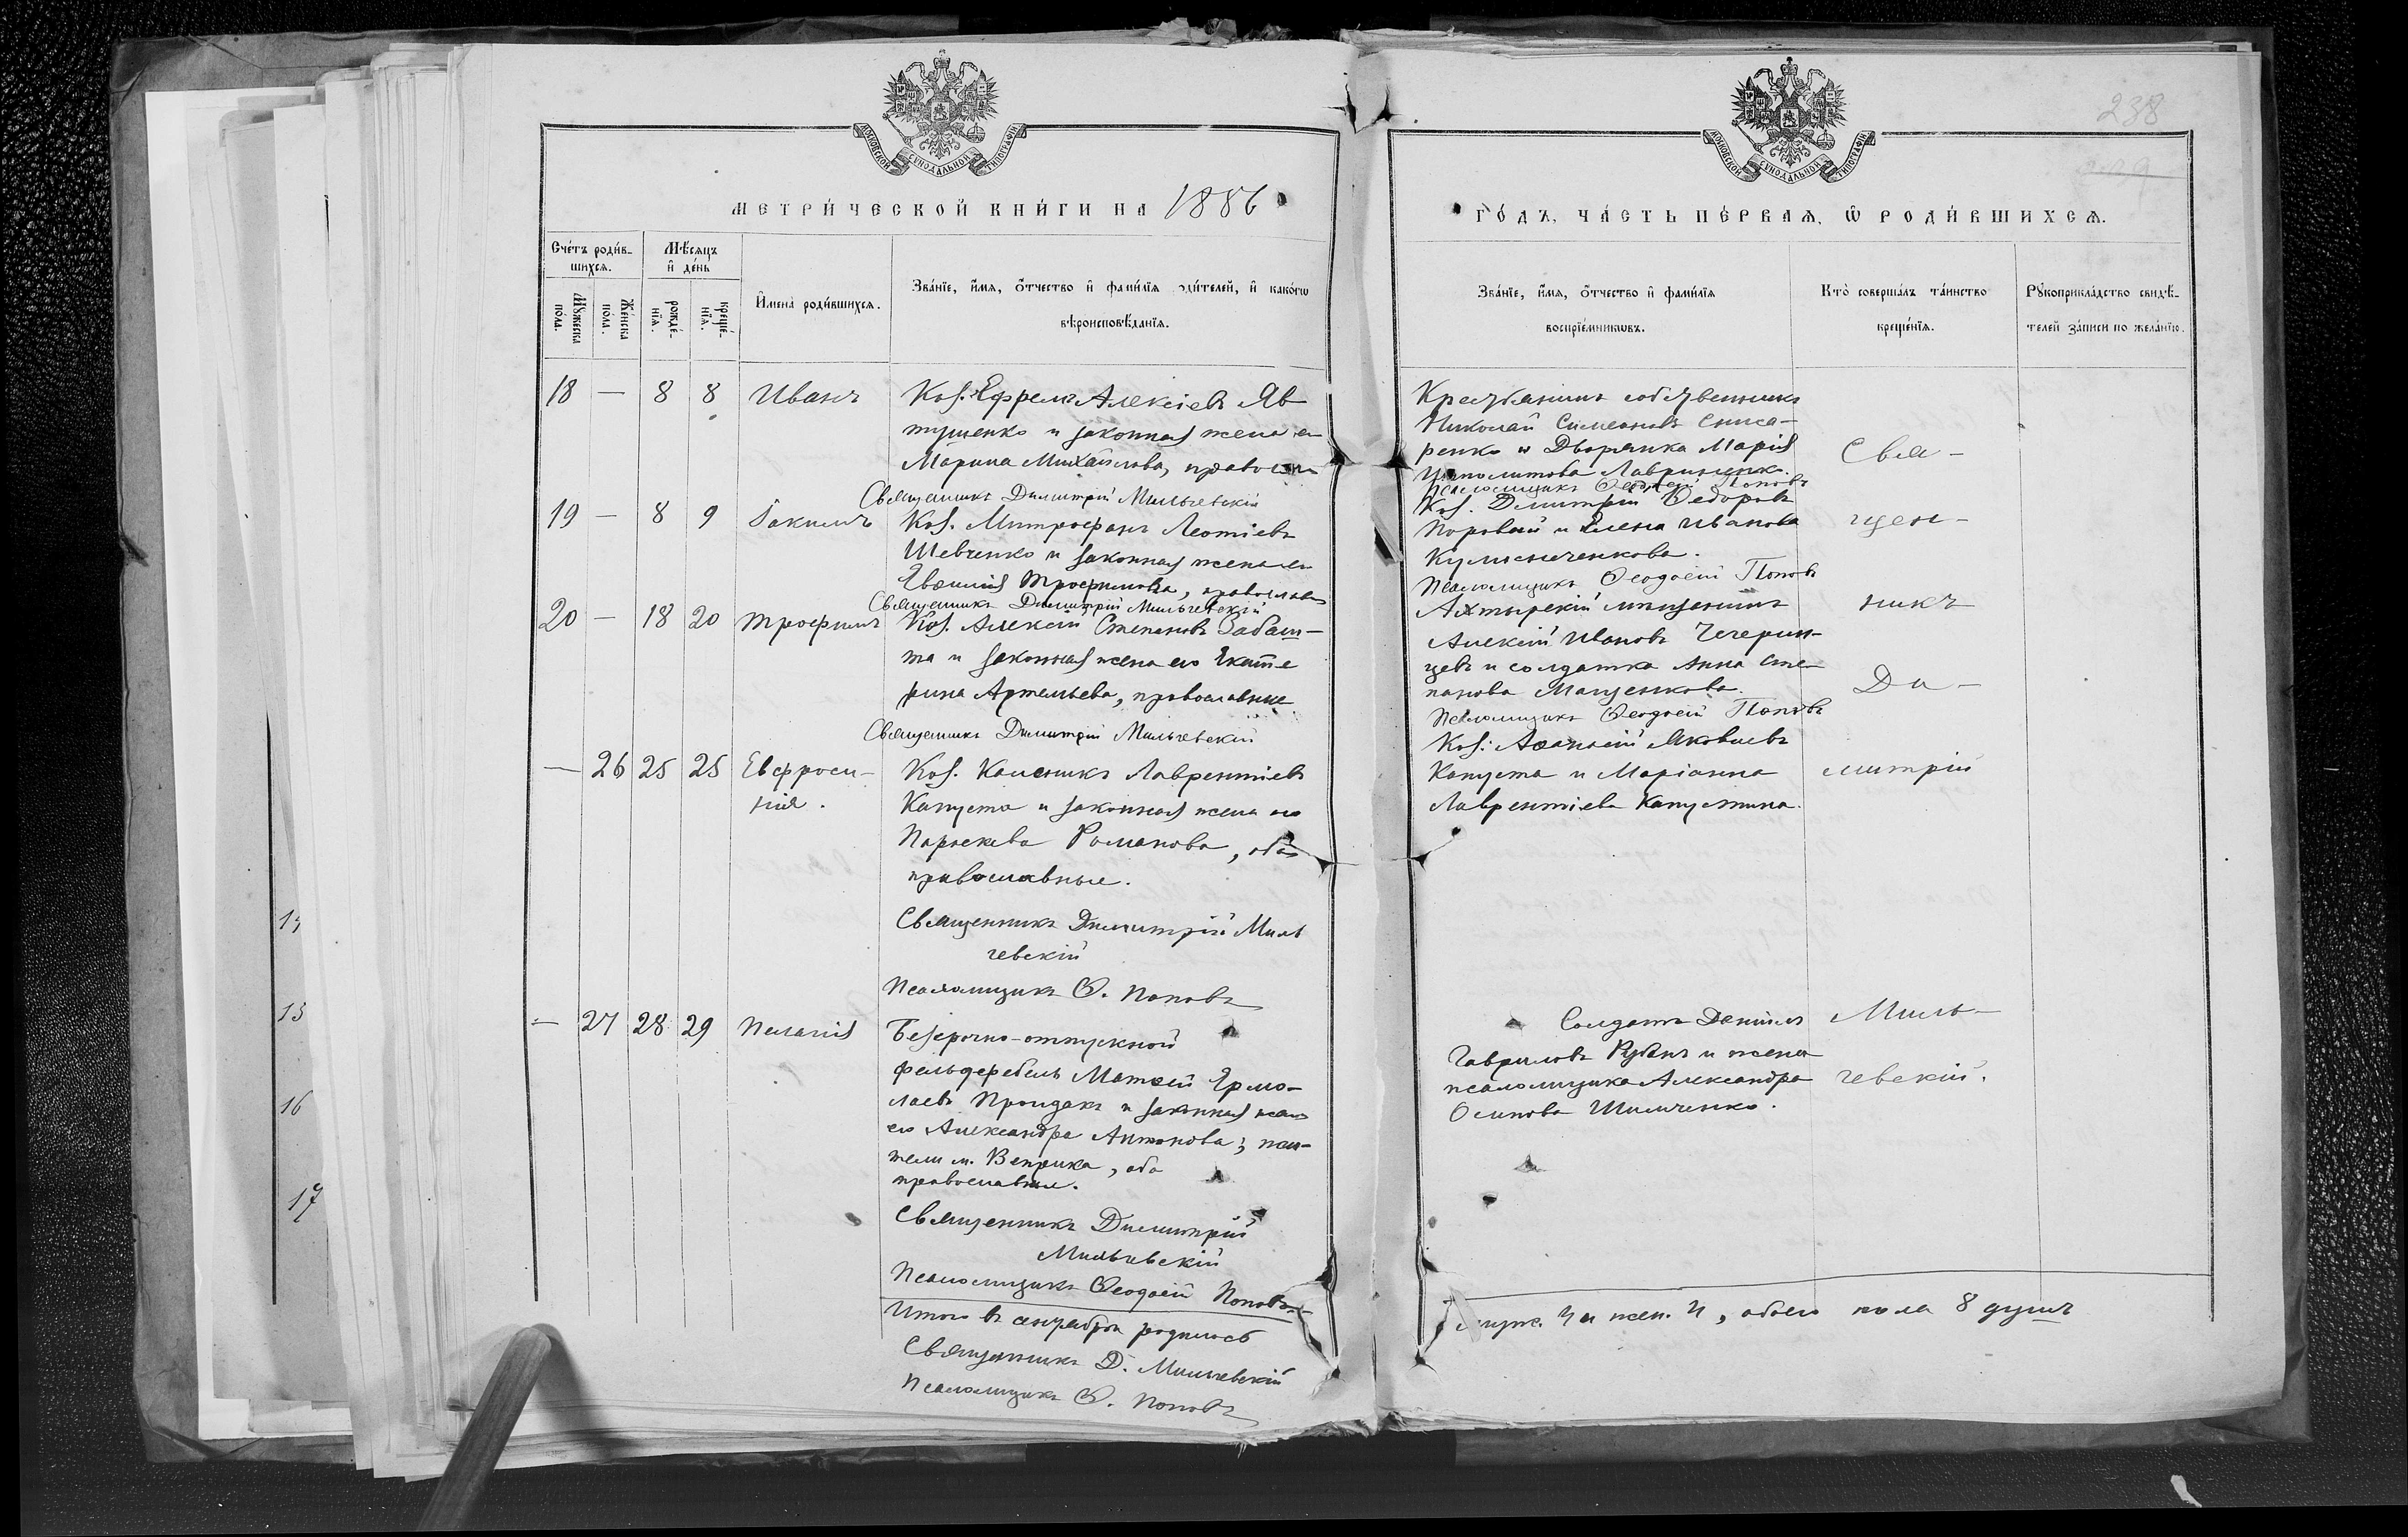 МОСКОВСКОЙ СѴНОДАЛЬНОЙ ТИПОГРАФІИ
МЕТРИ́ЧЕСКОЙ КНИ́ГИ НА 1886
Сче́тъ роди́в-
шихсѧ.
Мѣ́сѧцъ
и҆ де́нь
Мꙋ́жеска
по́ла.
Же́нска
по́ла.
рожде́-
нїѧ.
креще́-
нїѧ.
И҆мена̀ роди́вшихсѧ.
Зва́нїе, и҆́мѧ, ѻ҆́тчество и҆ фами́лїѧ роди́телей, и҆ како́гѡ
вѣроисповѣ́данїѧ.
18 — 8 8 Иванъ
Коз. Ефремъ Алексіевъ Яв
тушенко и законная жена его
Марина Михайлова, православн
Священникъ Димитрій Мильчевскій
19 — 8 9 Іакимъ
Коз. Митрофанъ Леотіевъ
Шевченко и законная жена его
Евѳимія Трофимова, православн
Священникъ Димитрій Мильчевскій
20 — 18 20 Трофимъ
Коз. Алексій Степановъ Забаш-
та и законная жена его Екате
рина Артемьева, православные
Священникъ Димитрій Мильчевскій
— 26 25 25 Евфроси-
нія.
Коз. Калѣникъ Лаврентіевъ
Капуста и законная жена его
Параскева Романова, оба
православные.
Священникъ Димитрій Миль
чевскій
Псаломщикъ Ѳ. Поповъ
— 27 28 29 Пелагія
Безсрочно-отпускной
фельдфебель Матѳей Ермо-
лаевъ Проидакъ и законная жена
его Александра Антонова; жи-
тели м. Веприка, оба
православные.
Священникъ Димитрій
Мильчевскій
Псаломщикъ Ѳеодосій Поповъ
Итого въ сентябрѣ родилось
Священникъ Д. Мильчевскій
Псаломщикъ Ѳ. Поповъ
238
МОСКОВСКОЙ СѴНОДАЛЬНОЙ ТИПОГРАФІИ
ГО́ДЪ, ЧА́СТЬ ПЕ́РВАѦ, Ѡ҆ РОДИ́ВШИХСѦ.
Зва́нїе, и҆́мѧ, ѻ҆́тчество и҆ фами́лїѧ
воспрїе́мникѡвъ.
Кто̀ соверша́лъ та́инство
креще́нїѧ.
Рꙋкоприкла́дство свидѣ́-
телей за́писи по жела́нїю.
Крестьянинъ собственникъ
Николай Симеоновъ Слиса-
ренко и Дворянка Марія
Ипполитова Лавриненко.
Псаломщикъ Ѳеодосій Поповъ
Коз. Димитрій Ѳедоровъ
Поровай и Елена Иванова
Кульниченкова.
Псаломщикъ Ѳеодосій Поповъ
Ахтырскій мѣщанинъ
Алексій Ивановъ Чечерин-
цевъ и солдатка Анна Сте-
панова Мащенкова.
Псаломщикъ Ѳеодосій Поповъ
Коз. Аѳанасій Яковлевъ
Капуста и Маріанна
Лаврентіева Капустина.
Солдатъ Даніилъ
Гавриловъ Рубанъ и жена
псаломщика Александра
Осипова Шимченко.
Свя-
щен-
никъ
Ди-
митрій
Миль-
чевскій.
муж. 4 и жен. 4, обоего пола 8 душъ
15
16
17